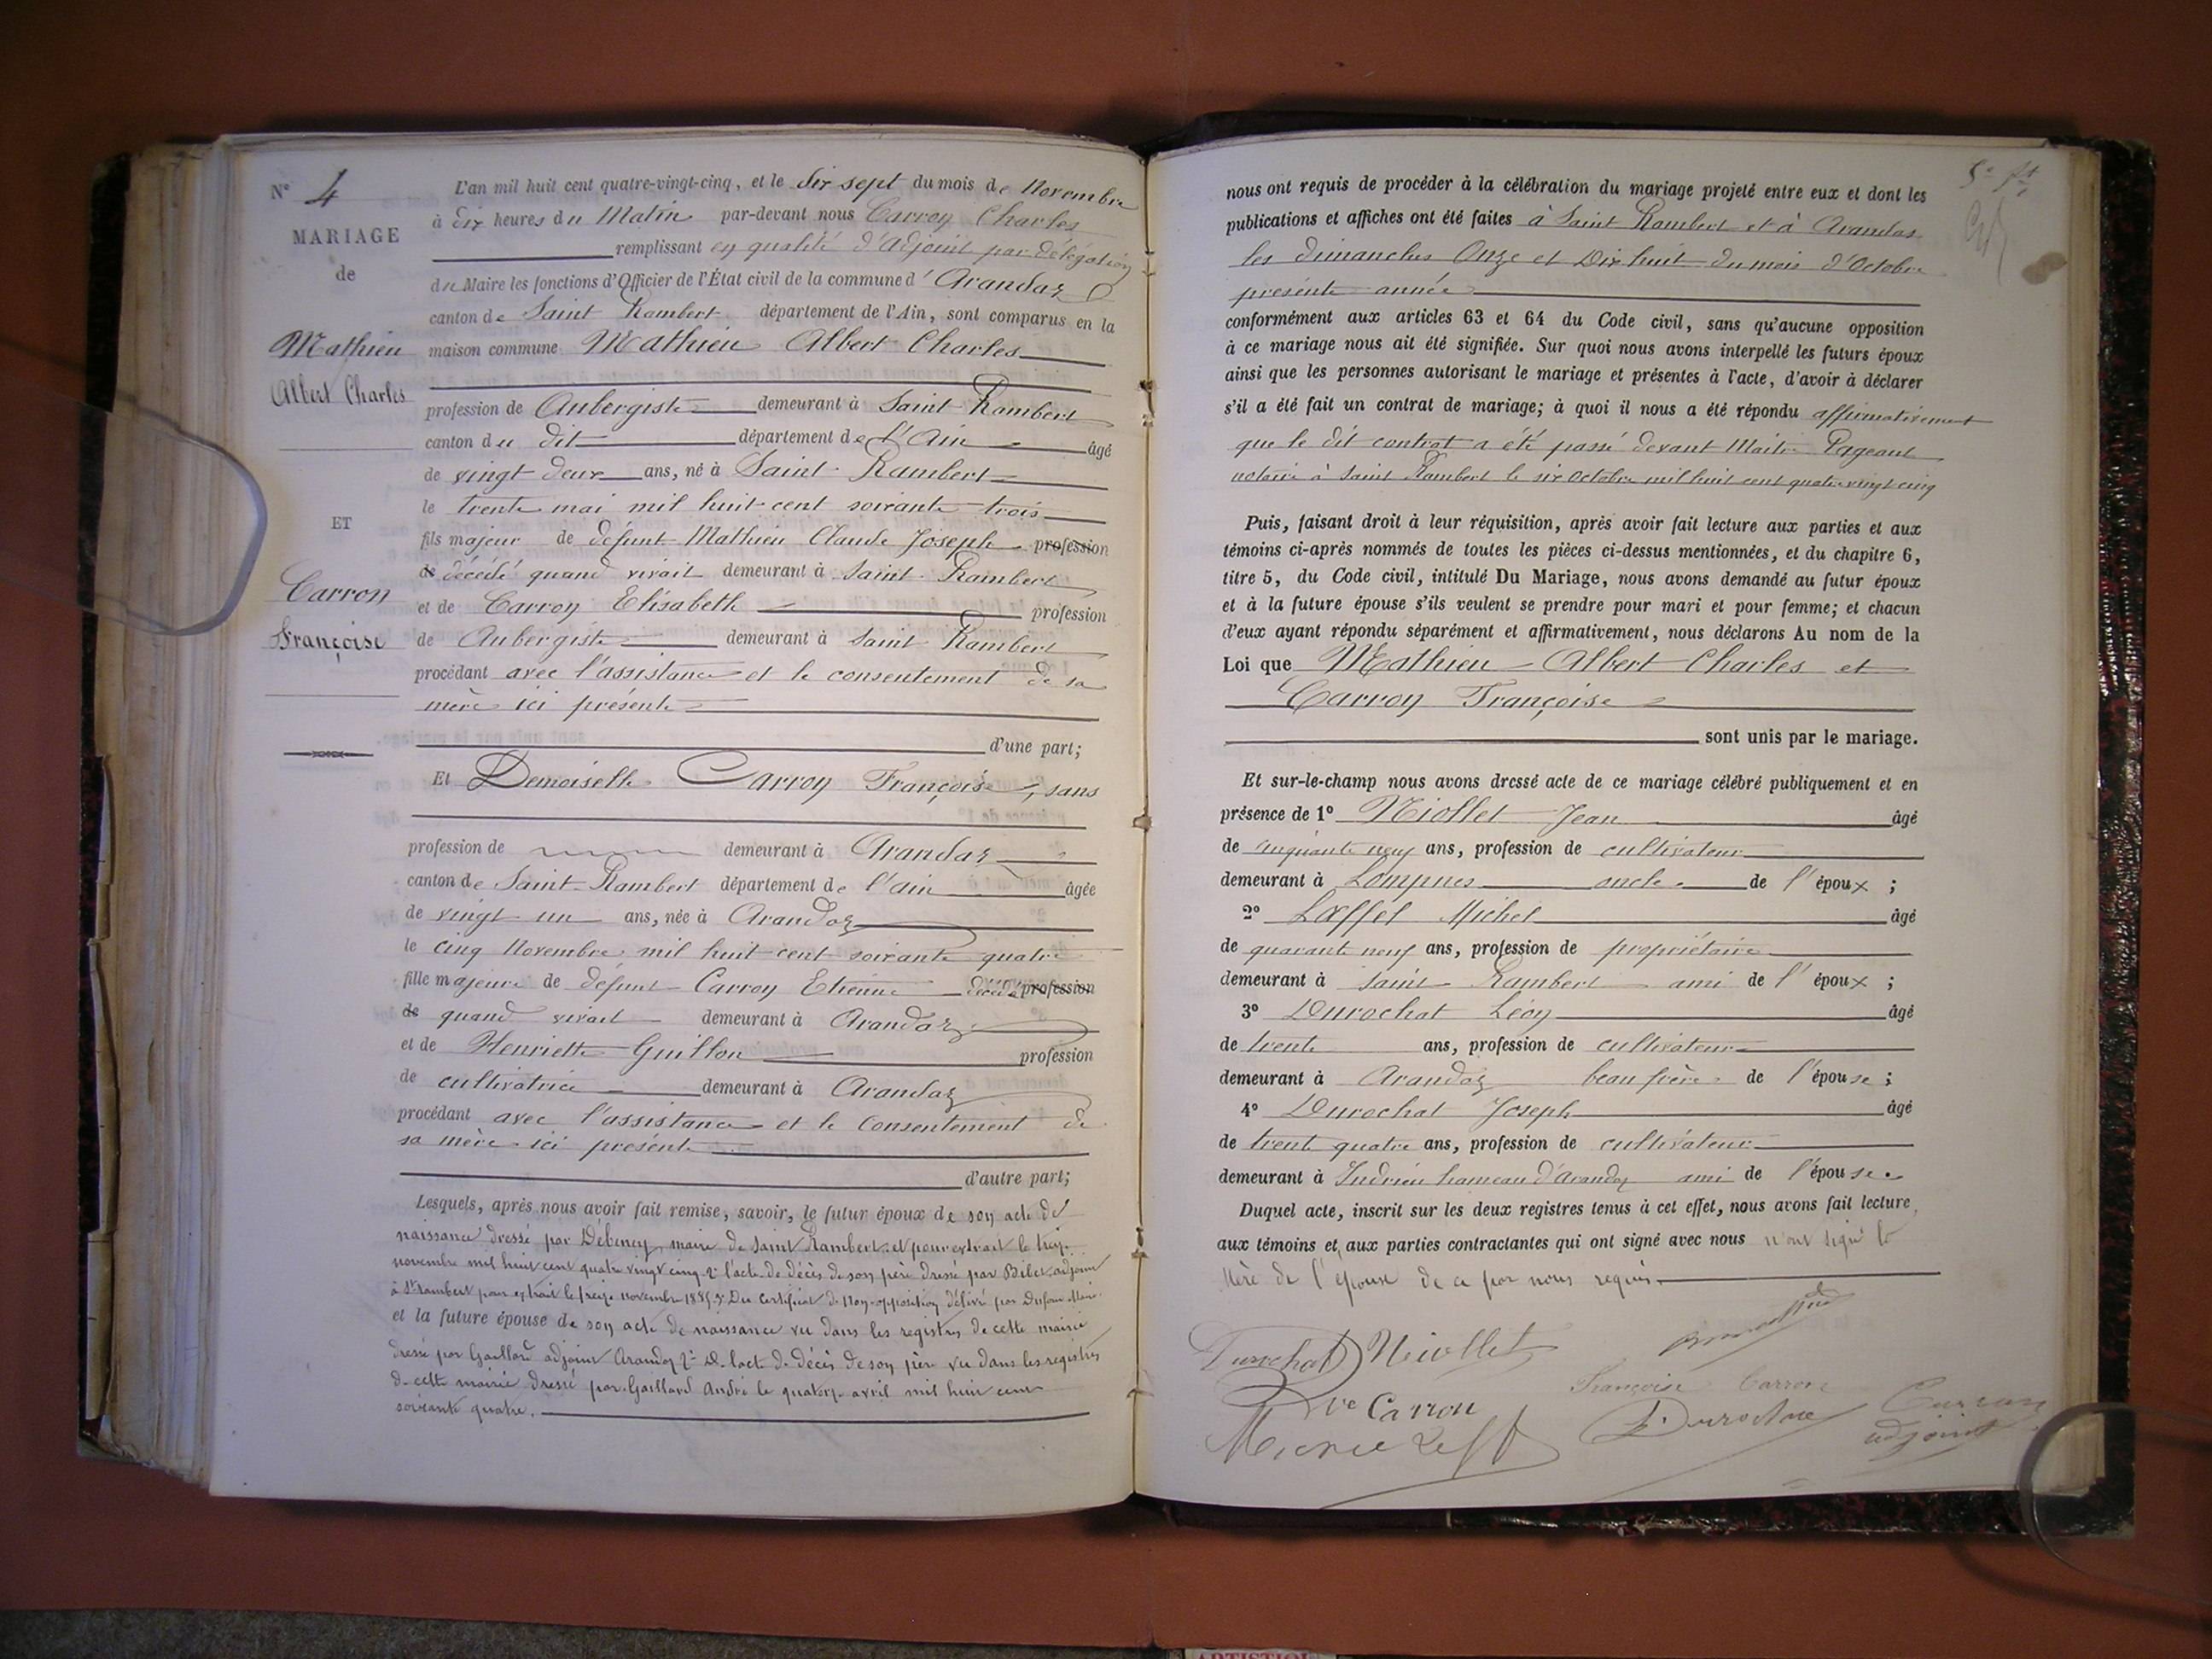 N° 4
MARIAGE
de
Mathieu
Albert Charles
ET
Carron
Françoise
L'an mil huit cent quatre-vingt-cinq, et le dix sept du mois de Novembre
à dix heures du Matin par-devant nous Carron Charles
remplissant en qualité d'adjoint par délégation
du Maire les fonctions d'Officier de l'État civil de la commune d'Arandas
canton de Saint Rambert département de l'Ain, sont comparus en la
maison commune Mathieu Albert Charles
profession de Aubergiste demeurant à Saint-Rambert
canton du dit département de l'Ain âgé
de vingt deux ans, né à Saint-Rambert
le trente mai mil huit cent soixante trois
fils majeur de défunt Mathieu Claude Joseph profession
de décédé quand vivait demeurant à Saint-Rambert
et de Carron Elisabeth profession
de Aubergiste demeurant à Saint Rambert
procédant avec l'assistance et le consentement de sa
mère ici présente
d'une part;
Et Demoiselle Carron Françoise, sans
profession de demeurant à Arandas
canton de Saint-Rambert département de l'ain âgée
de vingt un ans, née à Arandas
le cinq Novembre mil huit cent soixante quatre
fille majeure de défunt Carron Etienne décédé profession
de quand vivait demeurant à Arandas
et de Henriette Guillon profession
de cultivatrice demeurant à Arandas
procédant avec l'assistance et le consentement de
sa mère ici présente
d'autre part;
Lesquels, après nous avoir fait remise, savoir, le futur époux de son acte de
naissance dressé par Débeney, maire de Saint Rambert et pour extrait le treize
novembre mil huit cent quatre vingt cinq 2° l'acte de décès de son père dressé par adjoint
à St Rambert pour extrait le treize novembre 1885 3° Du certificat de Non-opposition délivré par Dufour Maire
et la future épouse de son acte de naissance vu dans les registres de cette mairie
dressé par Gaillard adjoint Arandas 2° De l'acte de décès de son père vu dans les registres
de cette mairie dressé par Gaillard André le quatorze avril mil huit cent
soixante quatre.
nous ont requis de procéder à la célébration du mariage projeté entre eux et dont les
publications et affiches ont été faites à Saint Rambert et à Arandas
les dimanches Onze et Dix huit du mois d'Octobre
présente année
conformément aux articles 63 et 64 du Code civil, sans qu'aucune opposition
à ce mariage nous ait été signifiée. Sur quoi nous avons interpellé les futurs époux
ainsi que les personnes autorisant le mariage et présentes à l'acte, d'avoir à déclarer
s'il a été fait un contrat de mariage; à quoi il nous a été répondu affirmativement
que le dit contrat a été passé devant Maître Pageaut
notaire à Saint Rambert le six Octobre mil huit cent quatre vingt cinq
Puis, faisant droit à leur réquisition, après avoir fait lecture aux parties et aux
témoins ci-après nommés de toutes les pièces ci-dessus mentionnées, et du chapitre 6,
titre 5, du Code civil, intitulé Du Mariage, nous avons demandé au futur époux
et à la future épouse s'ils veulent se prendre pour mari et pour femme; et chacun
d'eux ayant répondu séparément et affirmativement, nous déclarons Au nom de la
Loi que Mathieu Albert Charles et
Carron Françoise
sont unis par le mariage.
Et sur-le-champ nous avons dressé acte de ce mariage célébré publiquement et en
présence de 1° Niollet Jean âgé
de cinquante neuf ans, profession de cultivateur
demeurant à Lompnes oncle de l'époux;
2° Lœffel Michel âgé
de quarante neuf ans, profession de propriétaire
demeurant à Saint Rambert ami de l'époux;
3° Durochat Léon âgé
de trente ans, profession de cultivateur
demeurant à Arandas beau frère de l'épouse;
4° Durochat Joseph âgé
de trente quatre ans, profession de cultivateur
demeurant à Indrieu hameau d'Arandas ami de l'épouse.
Duquel acte, inscrit sur les deux registres tenus à cet effet, nous avons fait lecture
aux témoins et aux parties contractantes qui ont signé avec nous n'ont signé la
Mère de l'épouse de ce par nous requis
Durochat Niollet
Françoise Carron
Ve Carron
Durochat
Carron
adjoint